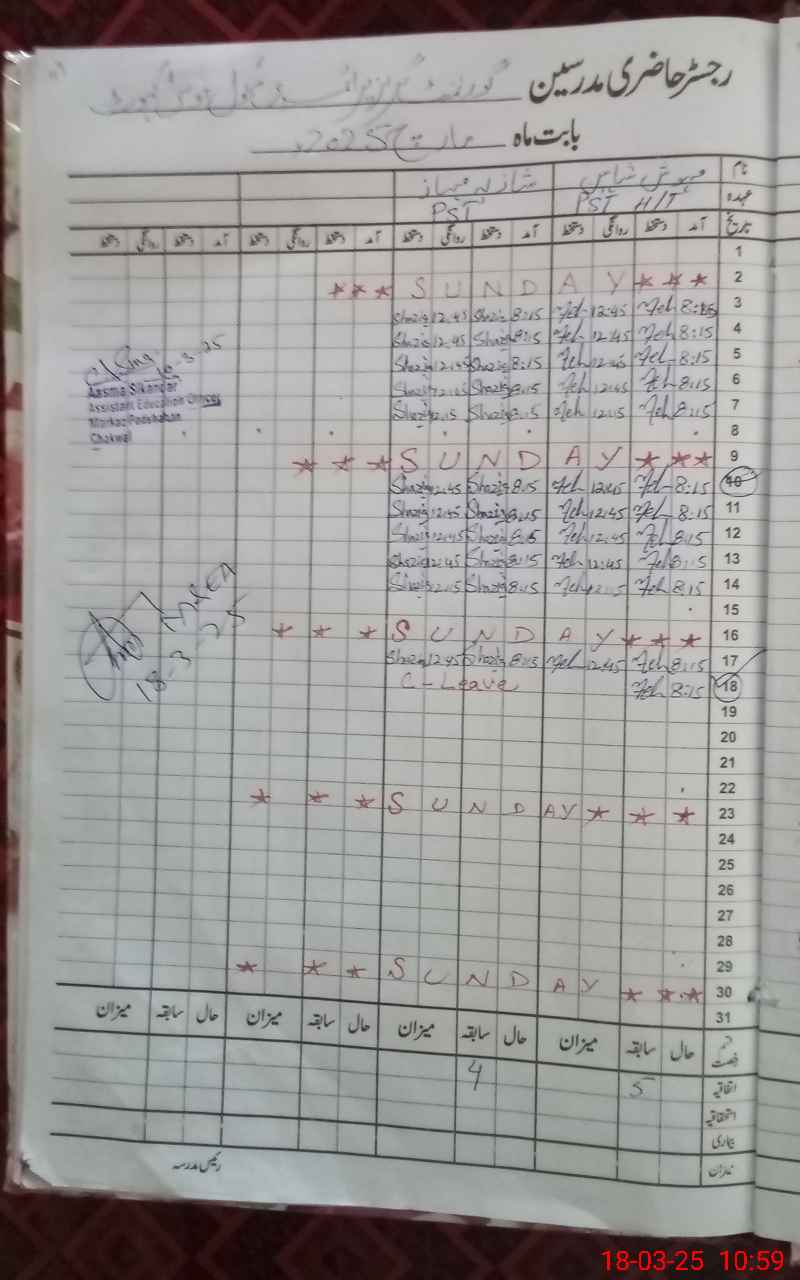 رجسٹر حاضری مدرسین گورنمنٹ گرلز پرائمری سکول
بابت ماہ مارچ 2025ء
نام مہوش شاہین شازیہ
عہدہ PST H/T PST
تاریخ آمد دستخط روانگی دستخط آمد دستخط روانگی دستخط آمد دستخط روانگی دستخط آمد دستخط روانگی دستخط
1
2 *** S U N D A Y ***
3 8:15 Meh 12:45 Meh 8:15 Shazia 12:45 Shazia
4 8:15 Meh 12:45 Meh 8:15 Shazia 12:45 Shazia
5 8:15 Meh 12:45 Meh 8:15 Shazia 12:45 Shazia
6 8:15 Meh 12:45 Meh 8:15 Shazia 12:45 Shazia
7 8:15 Meh 12:15 Meh 8:15 Shazia 12:15 Shazia
10-3-25
Aasma Sikandar
Assistant Education Officer
Markaz Padshahan
Chakwal
8
9 *** S U N D A Y ***
10 8:15 Meh 12:45 Meh 8:15 Shazia 12:45 Shazia
11 8:15 Meh 12:45 Meh 8:15 Shazia 12:45 Shazia
12 8:15 Meh 12:45 Meh 8:15 Shazia 12:45 Shazia
13 8:15 Meh 12:45 Meh 8:15 Shazia 12:45 Shazia
14 8:15 Meh 12:15 Meh 8:15 Shazia 12:15 Shazia
15
16 *** S U N D A Y ***
17 8:15 Meh 12:45 Meh 8:15 Shazia 12:45 Shazia
18 8:15 Meh C-Leave
18-3-25
19
20
21
22
23 *** S U N D A Y ***
24
25
26
27
28
29
30 *** S U N D A Y ***
31
قسم رخصت حال سابقہ میزان حال سابقہ میزان حال سابقہ میزان حال سابقہ میزان
اتفاقیہ 5 4
استحقاقیہ
بیماری
رئیس مدرسہ
18-03-25 10:59